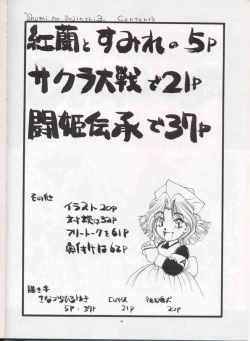 "Shumi no Dojinshi 3" Contents
紅蘭とすみれの5P
サクラ大戦で21P
闘姫伝承で37P
その他
イラスト20P
対談は52P
フリートークを61P
奥付けは62P
描き手
5P・37P
21P
20P